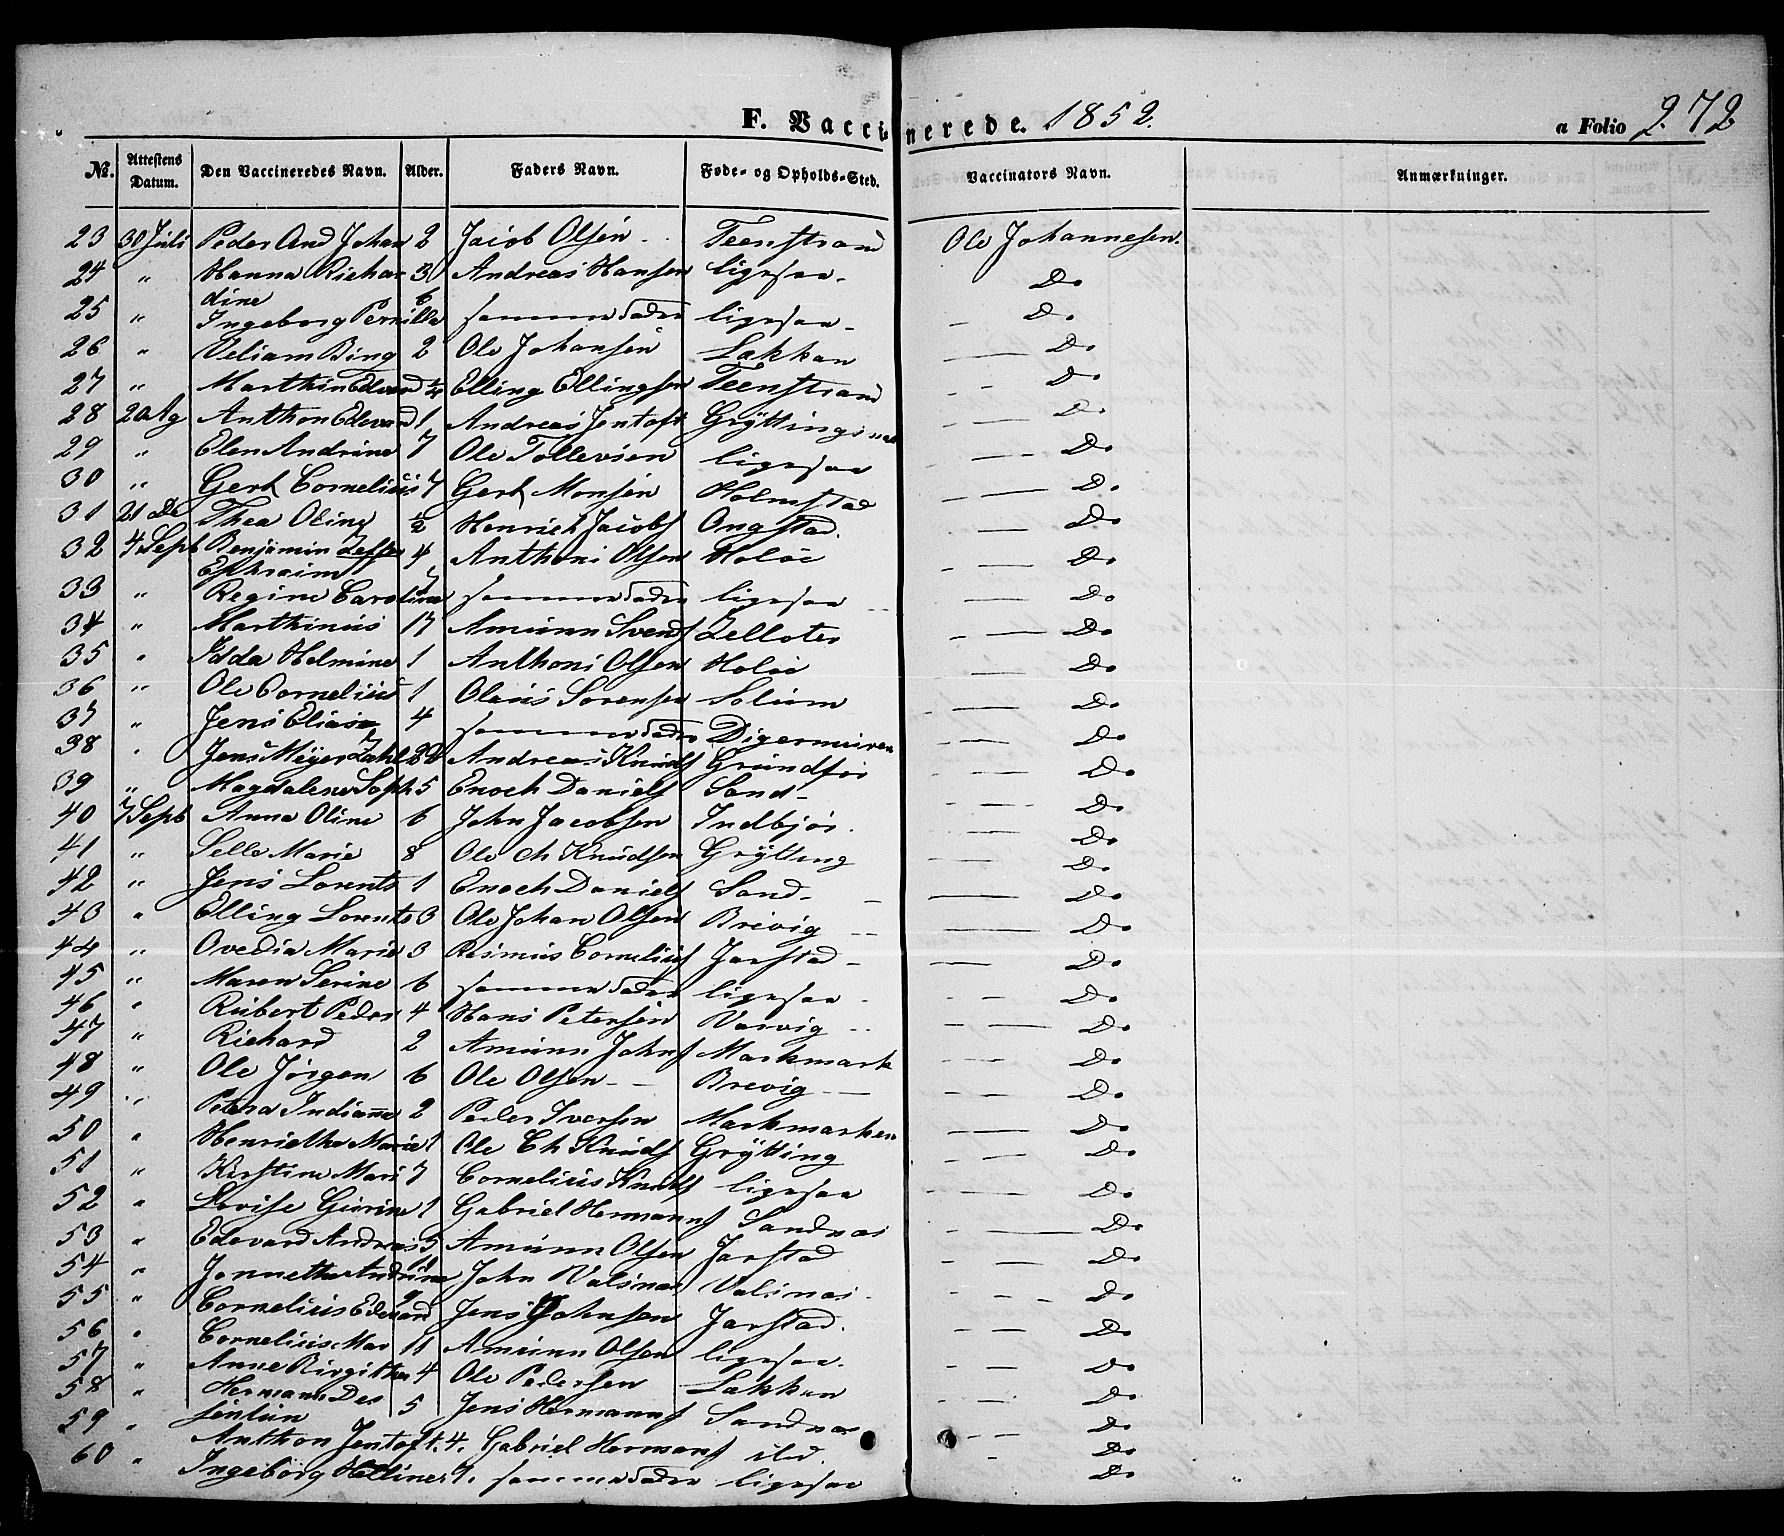 F. Vaccinerede. 1852. a Folio 272
No. Attestens Datum. Den Vaccineredes Navn. Alder. Faders Navn. Føde- og Opholds-Sted. Vaccinators Navn. Anmærkninger.
23 30 Juli Peder And Johan 2 Jacob Olsen Teenstrand Ole Johannesen.
24 " Hanna Richardine 3 Andreas Hansen ligesaa Do
25 " Ingeborg Pernilla 6 samme Fader ligesaa Do
26 " Veliam Bing 2 Ole Johansen Lakkan Do
27 " Marthin Edevard 1/4 Elling Ellingsen Teenstrand Do
28 20 Ag Anthon Edevard 1 Andreas Jentoft Gryttingsnæs Do
29 " Elen Andrine 7 Ole Tollevsen ligesaa Do
30 " Gert Cornelius 7 Gert Monsen Holmstad Do
31 21 do Thea Oline 1/2 Henrich Jacobs Ongstad. Do
32 4 Sept Benjamin Zeffer Ephraim 4 Anthoni Olsen Holøe Do
33 " Regine Caroline 7 samme Fader ligesaa Do
34 " Marthinus 17 Amunn Svends Zelloter Do
35 " Idda Helmine 1 Anthoni Olsen Holøe Do
36 " Ole Cornelius 1 Oleus Sorensen Solium Do
37 " Jens Elias 4 samme Fader Digermuiren Do
38 " Jens Meyer Zahl 22 Andreas Knuds Grundfør Do
39 " Magdalene Soph 5 Enoch Daniels Sand Do
40 7 Sept Anna Oline 6 John Jacobsen Indbjør. Do
41 " Selle Marie 8 Ole Ch Knudsen Grytting Do
42 " Jens Lorents 1 Enoch Daniels Sand Do
43 " Elling Lorents 3 Ole Johan Olsen Brevig Do
44 " Ovedia Marie 3 Rasmus Cornelius Jarstad Do
45 " Maren Serine 6 samme Fader ligesaa Do
46 " Rubert Peder 4 Hans Petersen Varvig Do
47 " Richard 2 Amunn Johns Markmark Do
48 " Ole Jørgen 6 Ole Olsen Brevig Do
49 " Petera Indianna 2 Peder Iversen Markmarken Do
50 " Henriethe Marie 1 Ole Ch Knuds Grytting Do
51 " Kirstine Mari 7 Cornelius Knuds ligesaa Do
52 " Lovise Gurine 1 Gabriel Hermanns Sandnæs Do
53 " Edevard Andreas 5 Amunn Olsen Jarstad Do
54 " Jonnetha Andrine 11 John Valsnæs Valsnæs Do
55 " Cornelius Edevard 9 Jens Johnsen Jarstad. Do
56 " Cornelius Mar 11 Amunn Olsen ligesaa Do
57 " Anne Birgitha 4 Ole Pedersen Lakkan Do
58 " Hermann Des 5 Jens Hermanns Sandnæs Do
59 " Anthon Jentoft. 4. Gabriel Hermans Do
60 " Ingeborg Helliner 1. samme Fader ligesaa Do